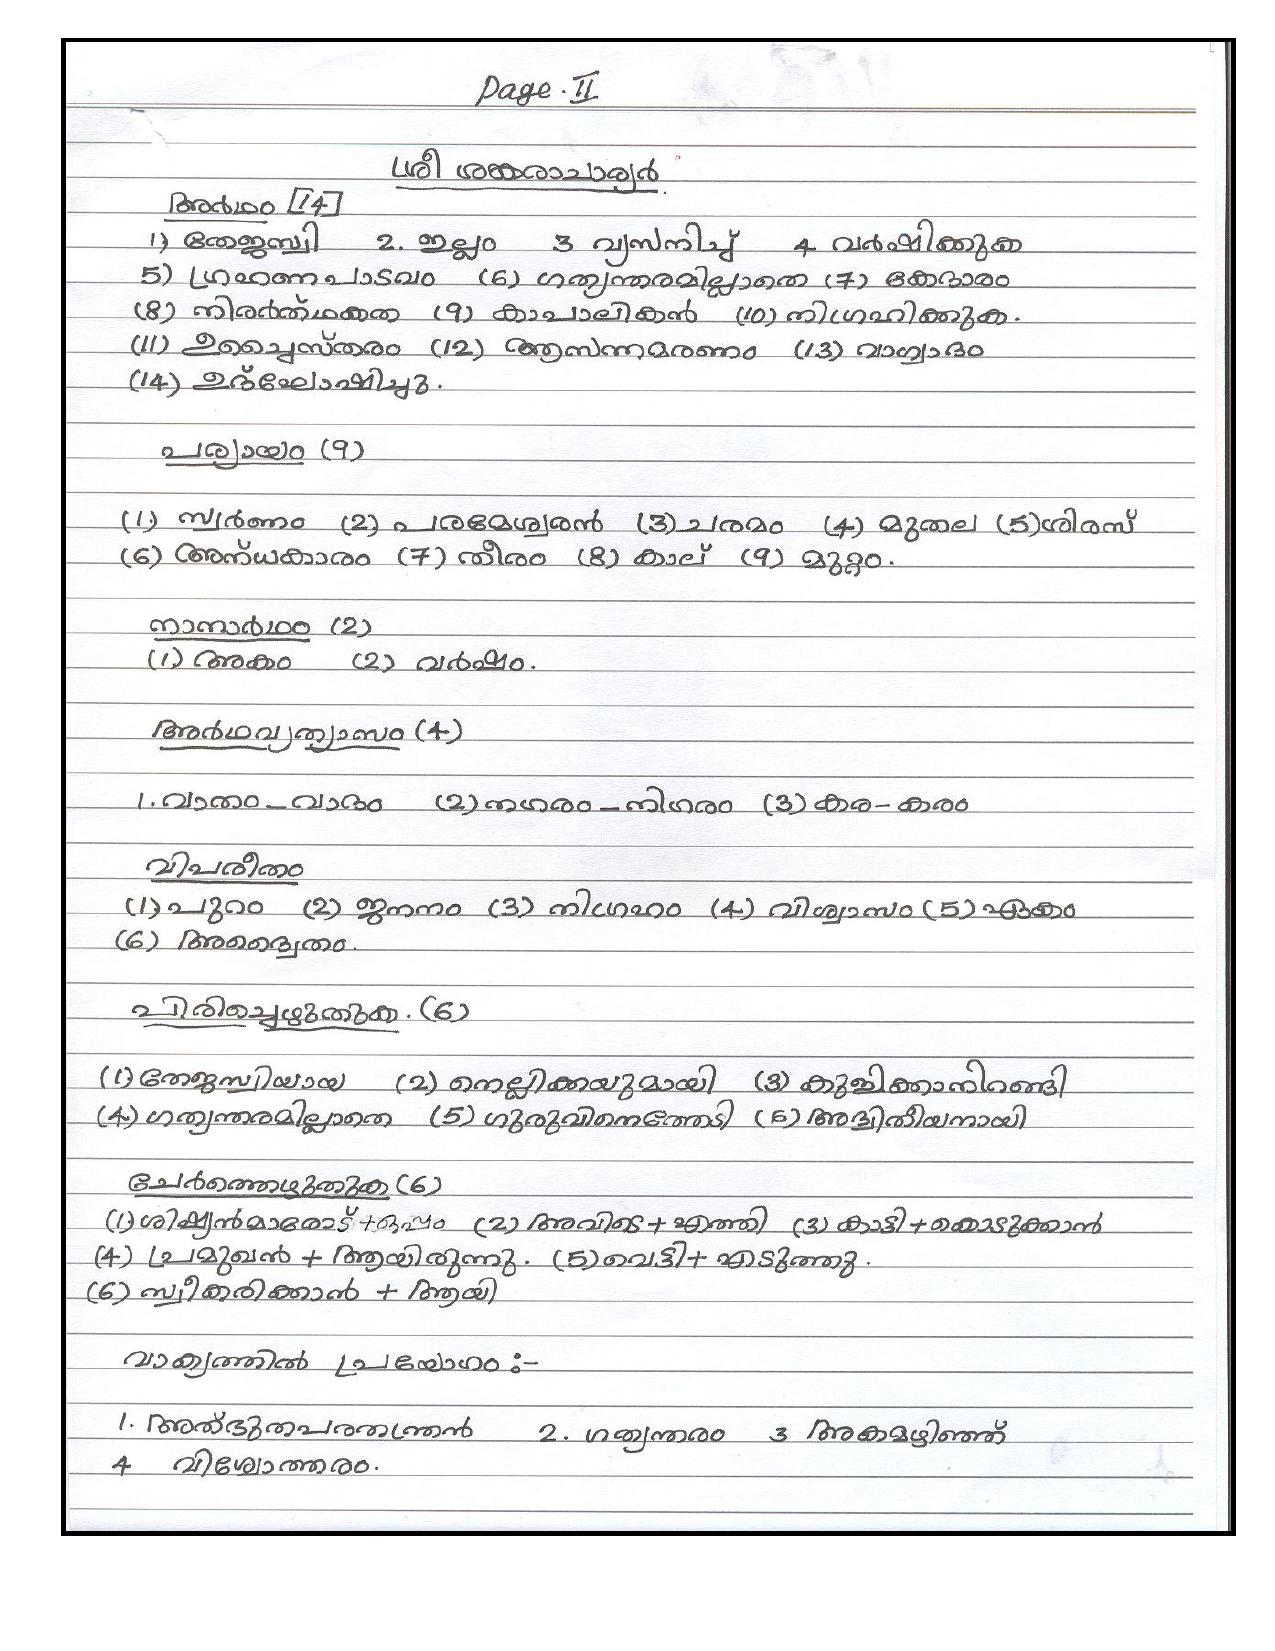 Page·II
ശ്രീ ശങ്കരാചാര്യൻ
അർഥം [14]
1) തേജസ്വി 2. ഇല്ലം 3 വ്യസനിച്ച് 4 വർഷിക്കുക
5) ഗ്രഹണപാടവം (6) ഗത്യന്തരമില്ലാതെ (7) കേദാരം
(8) നിരർത്ഥകത (9) കാപാലികൻ (10) നിഗ്രഹിക്കുക.
(11) ഉച്ചൈസ്തരം (12) ആസന്നമരണം (13) വാഗ്വാദം
(14) ഉദ്ഘോഷിച്ചു.
പര്യായം (9)
(1) സ്വർണം (2) പരമേശ്വരൻ (3) ചരമം (4) മുതല (5) ശിരസ്
(6) അന്ധകാരം (7) തീരം (8) കാല് (9) മുറ്റം.
നാനാർഥം (2)
(1) അകം (2) വർഷം.
അർഥവ്യത്യാസം (4)
1. വാതം - വാദം (2) നഗരം - നിഗരം (3) കര - കരം
വിപരീതം
(1) പുറം (2) ജനനം (3) നിഗ്രഹം (4) വിശ്വാസം (5) ഏകം
(6) അദ്വൈതം.
പിരിച്ചെഴുതുക. (6)
(1) തേജസ്വിയായ (2) നെല്ലിക്കയുമായി (3) കുളിക്കാനിറങ്ങി
(4) ഗത്യന്തരമില്ലാതെ (5) ഗുരുവിനെത്തേടി (6) അദ്വിതീയനായി
ചേർത്തെഴുതുക (6)
(1) ശിഷ്യൻമാരോട് + ഒപ്പം (2) അവിടെ + എത്തി (3) കാട്ടി + കൊടുക്കാൻ
(4) പ്രമുഖൻ + ആയിരുന്നു. (5) വെട്ടി + എടുത്തു.
(6) സ്വീകരിക്കാൻ + ആയി
വാക്യത്തിൽ പ്രയോഗം :-
1. അത്ഭുതപരതന്ത്രൻ 2. ഗത്യന്തരം 3 അകമഴിഞ്ഞ്
4 വിശ്വോത്തരം.